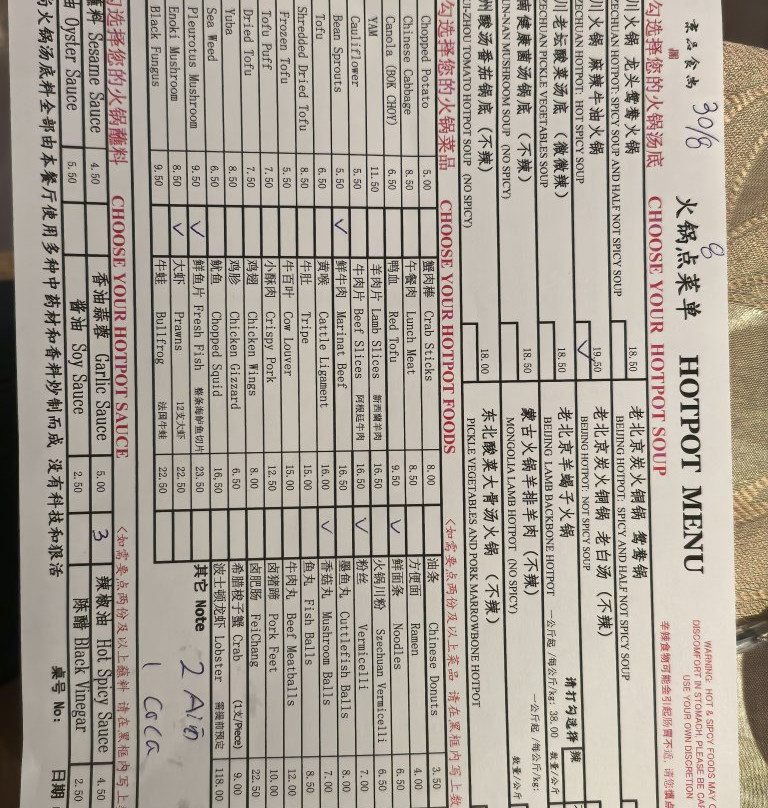 京品食尚 30/8
8
火锅点菜单 HOTPOT MENU
WARNING: HOT & SIPCY FOODS MAY C
DISCOMFORT IN STOMACH, PLEASE BE CAR
USE YOUR OWN DISCRETION
辛辣食物可能会引起肠胃不适
勾选择您的火锅汤底 CHOOSE YOUR HOTPOT SOUP
川火锅 龙头鸳鸯火锅 18.50
ZECHUAN HOTPOT: SPICY SOUP AND HALF NOT SPICY SOUP
老北京炭火铜锅 鸳鸯锅
BEIJING HOTPOT: SPICY AND HALF NOT SPICY SOUP
川火锅 麻辣牛油火锅 19.50
ZECHUAN HOTPOT: HOT SPICY SOUP
老北京炭火铜锅 老白汤 (不辣)
BEIJING HOTPOT: NOT SPICY SOUP
川老坛酸菜汤底 (微微辣) 18.50
ZECHUAN PICKLE VEGETABLES SOUP
老北京羊蝎子火锅
BEIJING LAMB BACKBONE HOTPOT 一公斤起 /每公斤/kg: 38.00
请打勾选择 辣
数量/公斤
南健康菌汤锅底 (不辣) 18.50
UN-NAN MUSHROOM SOUP (NO SPICY)
蒙古火锅羊排羊肉 (不辣)
MONGOLIA LAMB HOTPOT (NO SPICY) 一公斤起 /每公斤/kg:
数量/公斤
州酸汤番茄锅底 (不辣) 18.00
UI-ZHOU TOMATO HOTPOT SOUP (NO SPICY)
东北酸菜大骨汤火锅 (不辣)
PICKLE VEGETABLES AND PORK MARROWBONE HOTPOT
勾选择您的火锅菜品 CHOOSE YOUR HOTPOT FOODS <如需要点两份及以上菜品 请在黑框内写上数
Chopped Potato 5.00 蟹肉棒 Crab Sticks 8.00 油条 Chinese Donuts 3.50
Chinese Cabbage 8.50 午餐肉 Lunch Meat 8.50 方便面 Ramen 4.00
Canola (BOK CHOY) 6.50 鸭血 Red Tofu 9.50 鲜面条 Noodles 6.50
YAM 11.50 羊肉片 Lamb Slices 新西兰羊肉 16.50 火锅川粉 Szechuan Vermicelli 6.50
Cauliflower 5.50 牛肉片 Beef Slices 阿根廷牛肉 16.50 粉丝 Vermicelli 7.00
Bean Sprouts 5.50 鲜牛肉 Marinat Beef 16.50 墨鱼丸 Cuttlefish Balls 8.00
Tofu 6.50 黄喉 Cattle Ligament 16.00 香菇丸 Mushroom Balls 7.00
Shredded Dried Tofu 8.50 牛肚 Tripe 15.00 鱼丸 Fish Balls 8.50
Frozen Tofu 5.50 牛百叶 Cow Louver 15.00 牛肉丸 Beef Meatballs 12.00
Tofu Puff 7.50 小酥肉 Crispy Pork 12.50 卤猪蹄 Pork Feet 10.00
Dried Tofu 7.50 鸡翅 Chicken Wings 8.00 卤肥肠 FeiChang 22.50
Yuba 8.50 鸡胗 Chicken Gizzard 6.50 希腊梭子蟹 Crab (1支/Piece) 9.00
Sea Weed 6.50 鱿鱼 Chopped Squid 16.50 波士顿龙虾 Lobster 需提前预定 118.00
Pleurotus Mushroom 9.50 鲜鱼片 Fresh Fish 整条海鲈鱼切片 23.50 其它 Note
Enoki Mushroom 8.50 大虾 Prawns 12支大虾 22.50
Black Fungus 9.50 牛蛙 Bullfrog 法国牛蛙 22.50
1 Coca
勾选择您的火锅蘸料 CHOOSE YOUR HOTPOT SAUCE <如需要点两份及以上蘸料 请在黑框内写上
Sesame Sauce 4.50 香油蒜蓉 Garlic Sauce 5.00 3 辣椒油 Hot Spicy Sauce 4.50
油 Oyster Sauce 5.50 酱油 Soy Sauce 2.50 陈醋 Black Vinegar 2.50
火锅汤底料全部由本餐厅使用多种中药材和香料炒制而成 没有科技和狠活 桌号 No: 日期